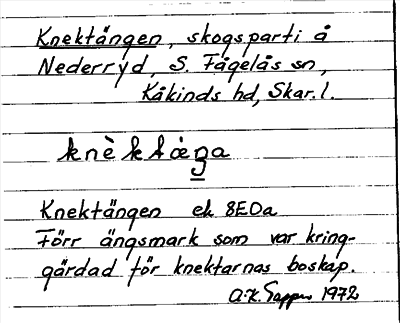 Knektängen, skogsparti å
Nederryd, S. Fågelås sn,
Kåkinds hd, Skar. l.
Knektängen ek 8EDa
Förr ängsmark som var kring-
gärdad för knektarnas boskap.
1972